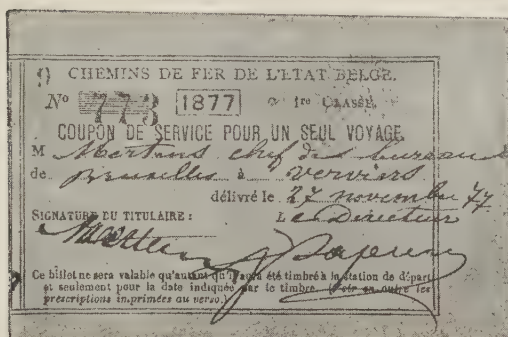 CHEMINS DE FER DE L'ETAT BELGE.
No 773 1877 1re CLASSE.
COUPON DE SERVICE POUR UN SEUL VOYAGE
M Mertens chef de bureau
de Bruxelles à Verviers
délivré le 27 novembre 77
SIGNATURE DU TITULAIRE : Le Directeur
Mertens
Ce billet ne sera valable qu'autant qu'il aura été timbré à la station de départ
et seulement pour la date indiquée par le timbre. (Voir en outre les
prescriptions imprimées au verso.)